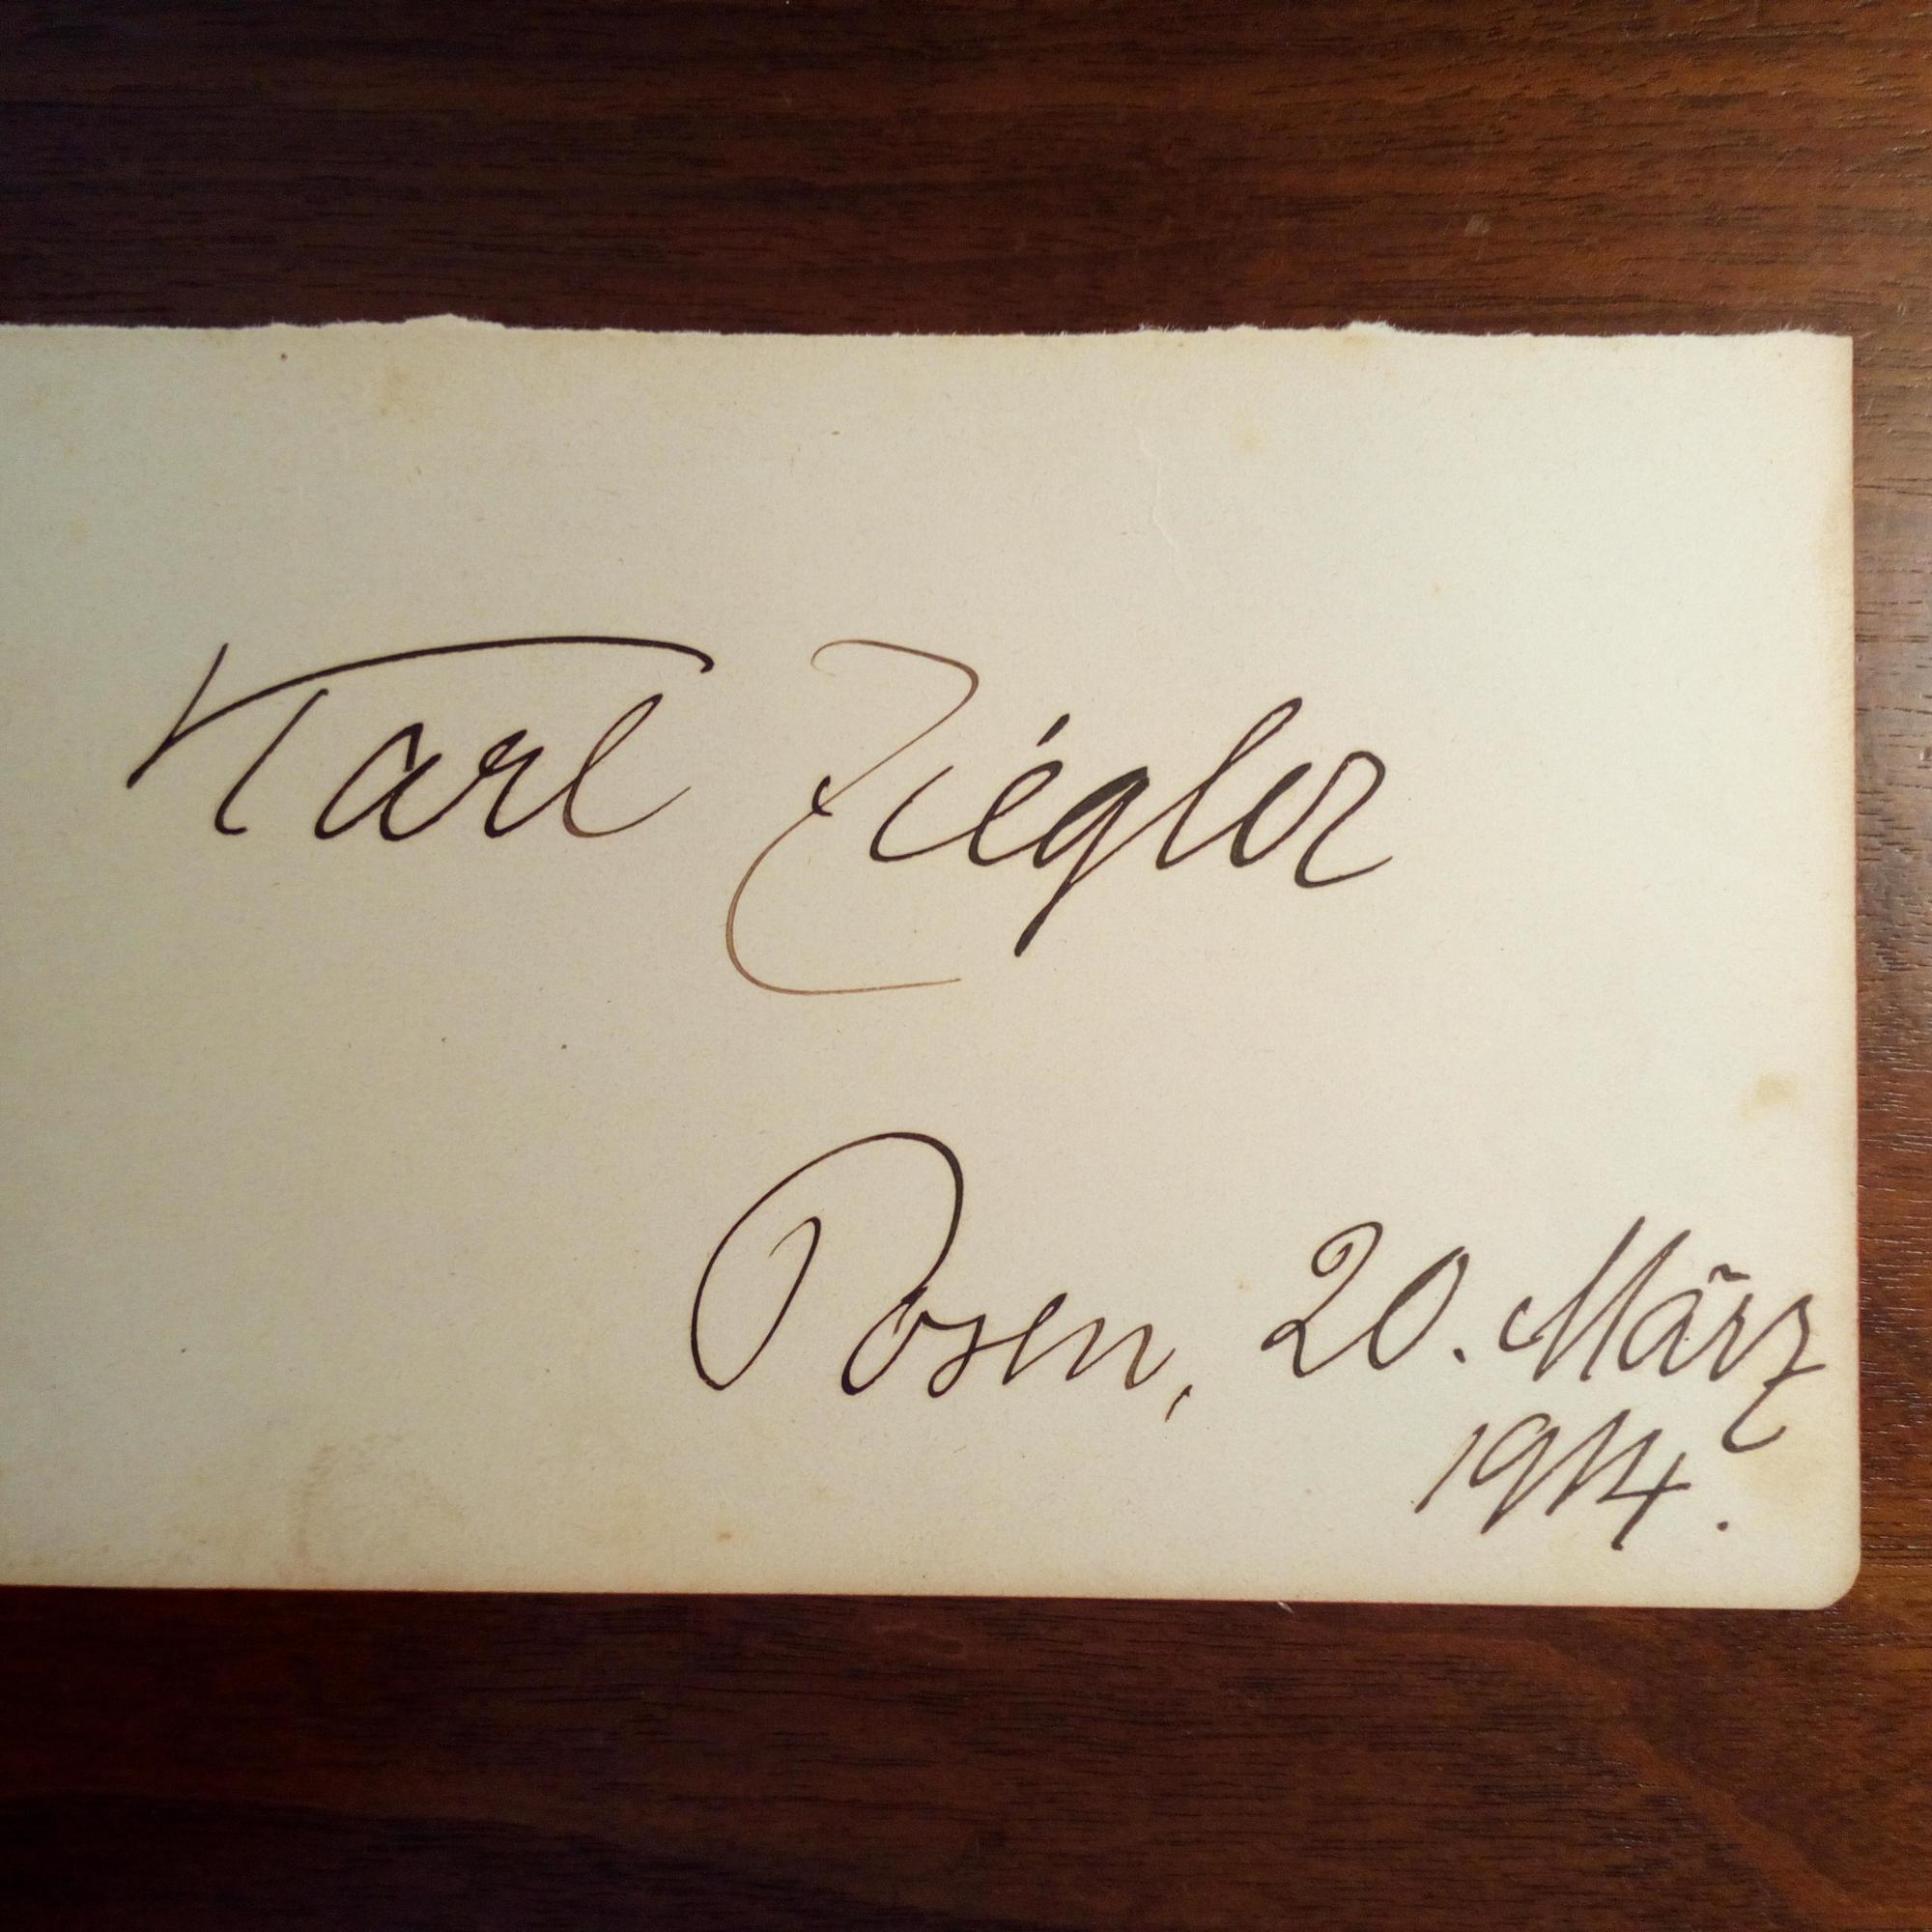 Karl Ziegler
Posen, 20. März
1914.